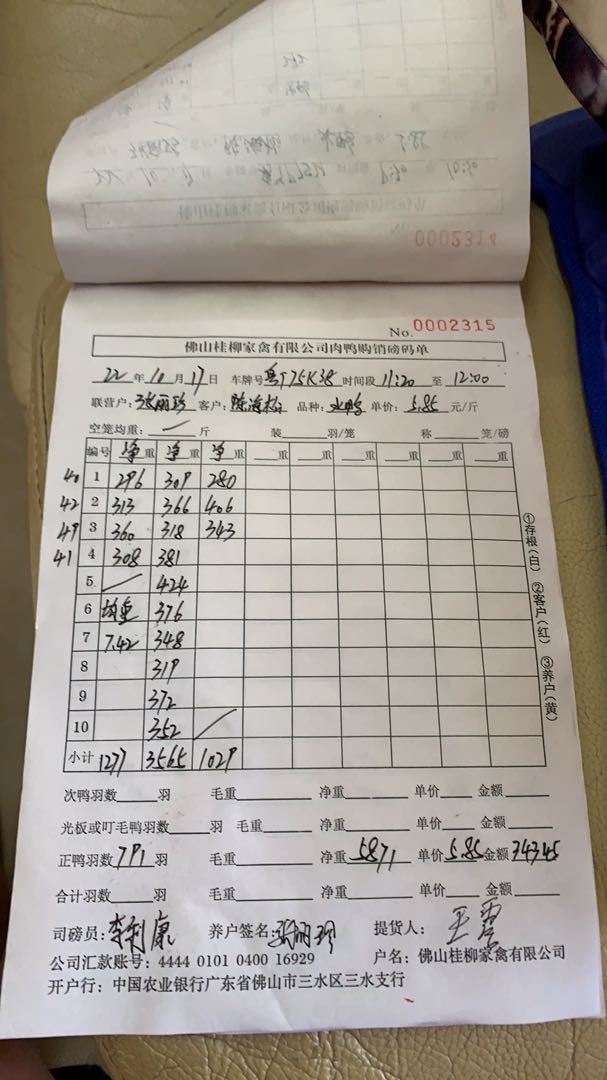 0002314
No. 0002315
佛山桂柳家禽有限公司肉鸭购销磅码单
22年10月17日 车牌号粤T75K38 时间段11:20至12:00
联营户:张丽珍 客户:陈海松 品种:水鸭 单价:5.85元/斤
空笼均重: 斤 装 羽/笼 称 笼/磅
编号 净重 净重 净重 重 重 重 重 重
40 1 296 309 280
42 2 313 366 406
49 3 360 318 343
41 4 308 381
5 424
6 均重 376
7 7.42 348
8 319
9 372
10 352
小计 1277 3565 1029
①存根(白) ②客户(红) ③养户(黄)
次鸭羽数 羽 毛重 净重 单价 金额
光板或叮毛鸭羽数 羽 毛重 净重 单价 金额
正鸭羽数791羽 毛重 净重5871 单价5.85金额34345
合计羽数 羽 毛重 净重 单价 金额
司磅员:李利康 养户签名:张丽珍 提货人:
公司汇款账号:4444 0101 0400 16929 户名:佛山桂柳家禽有限公司
开户行:中国农业银行广东省佛山市三水区三水支行